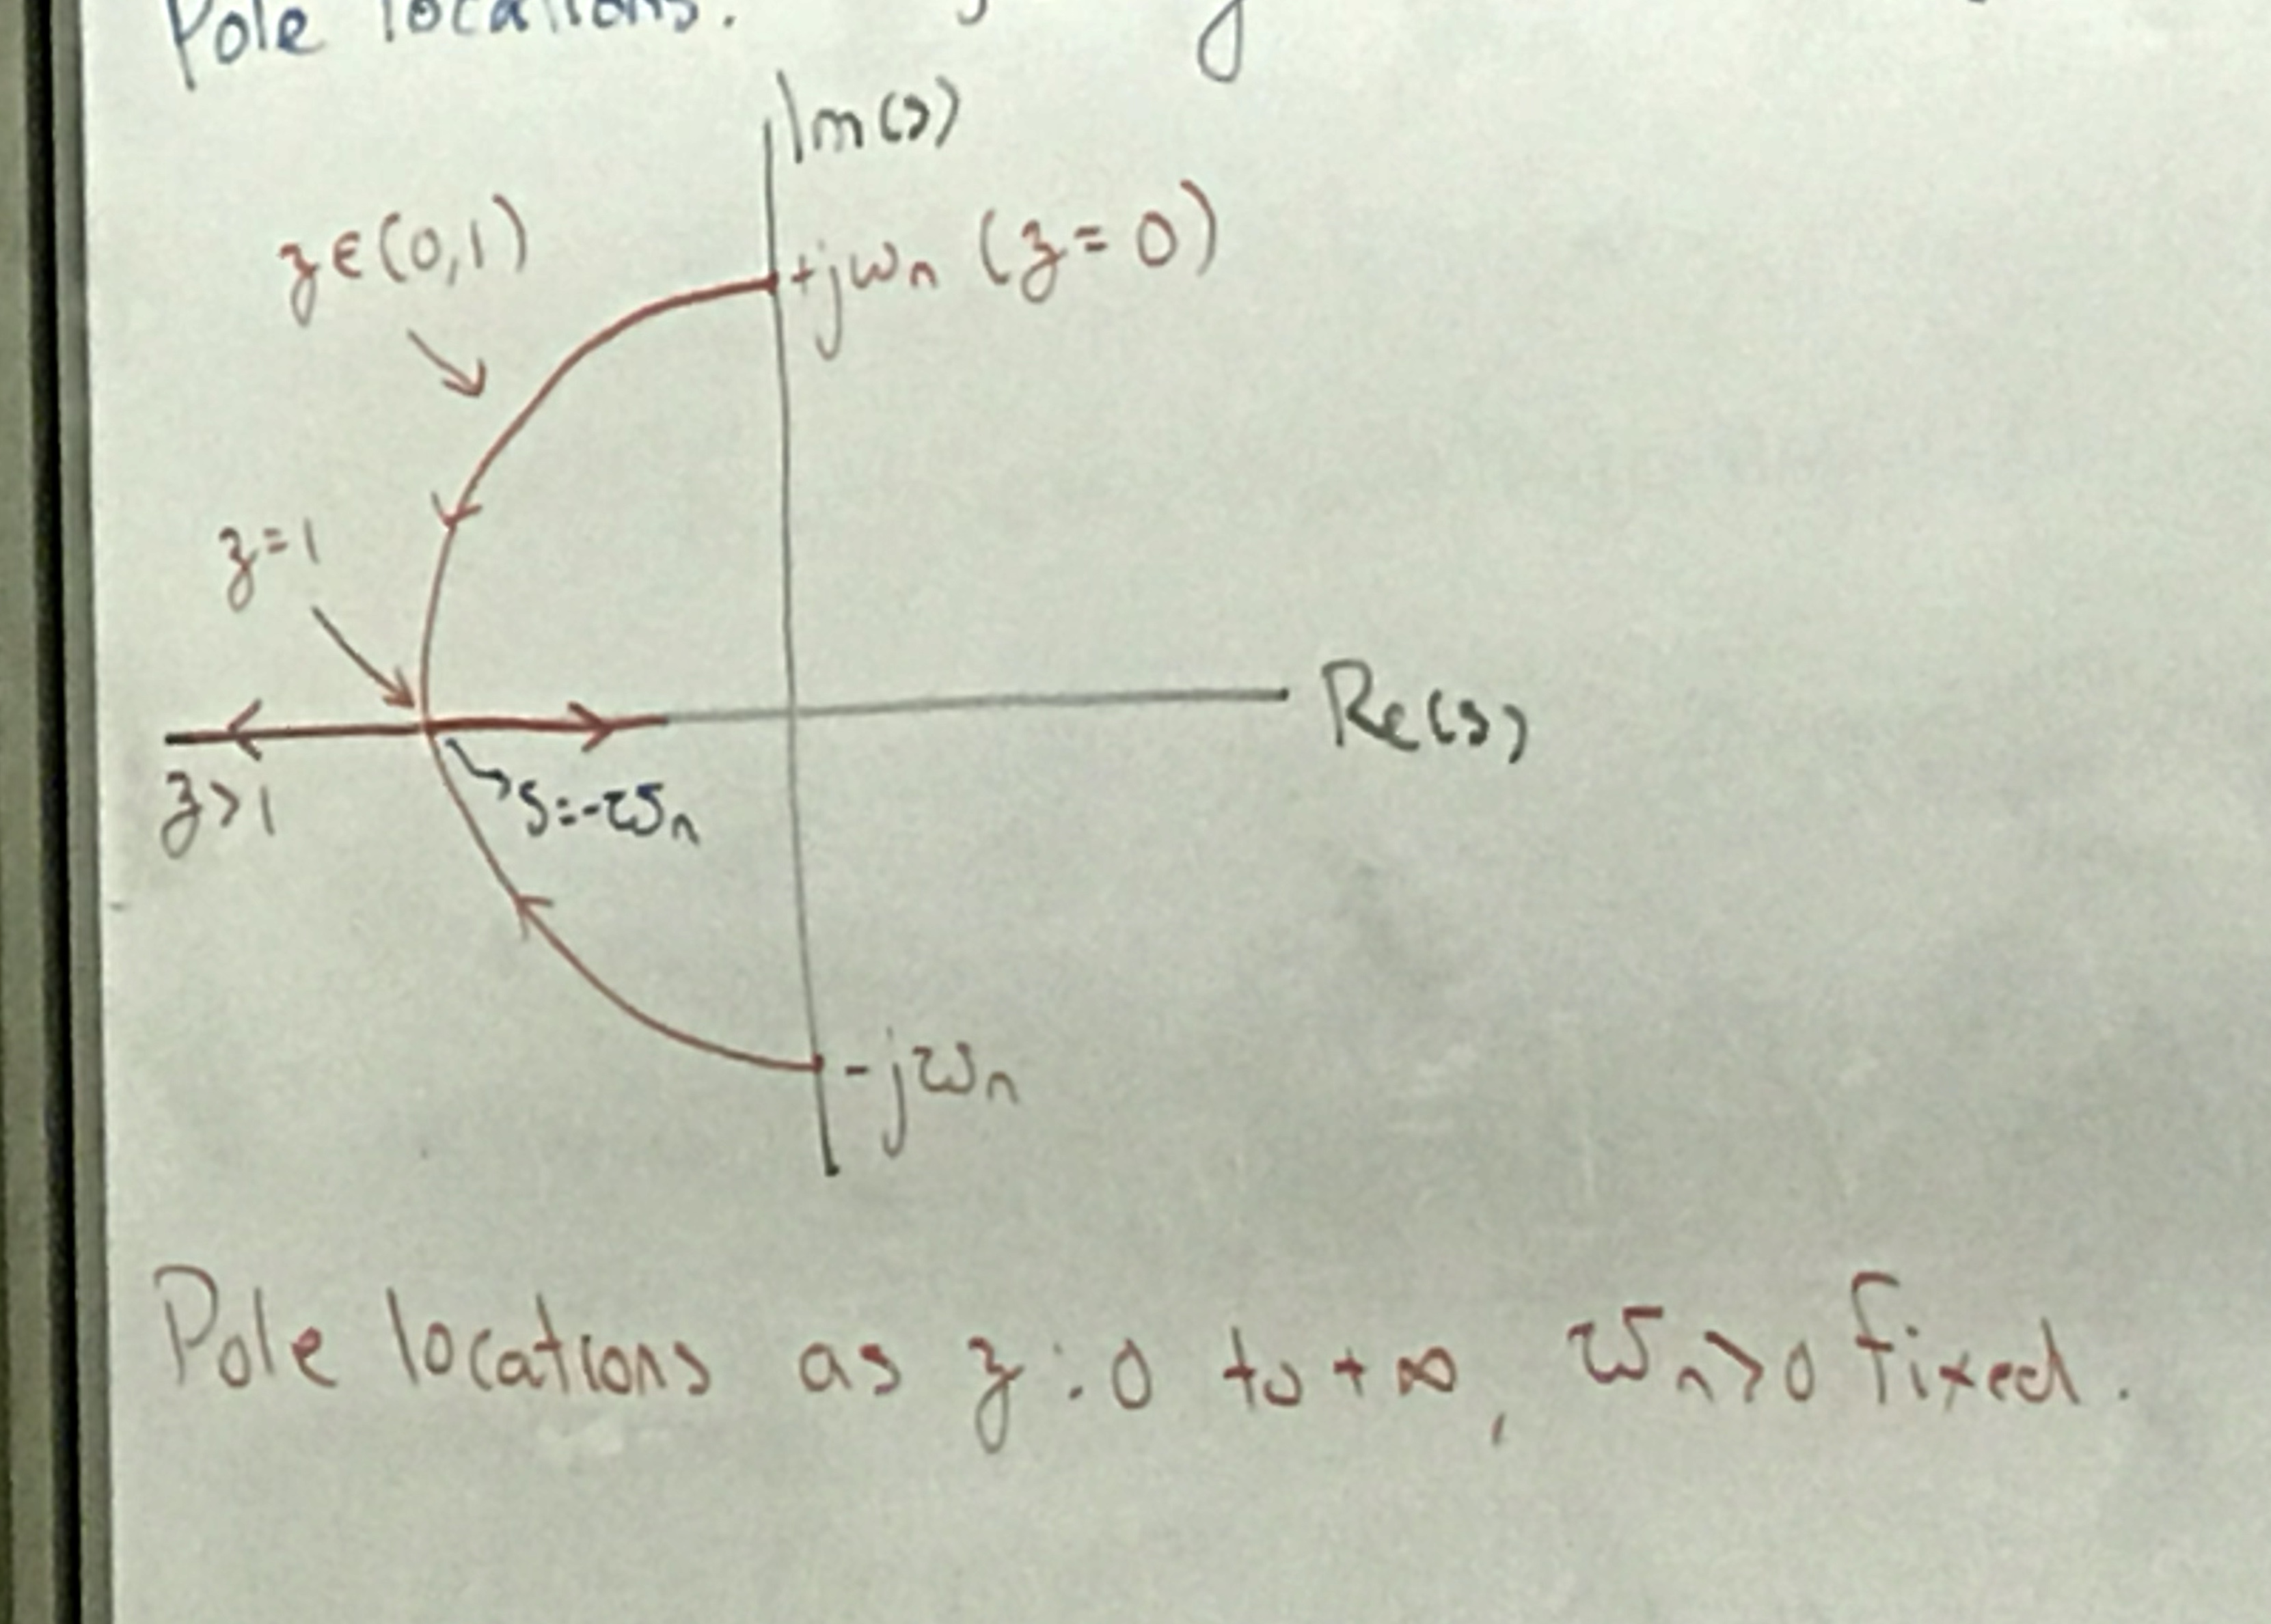 Pole locations.
Im(s)
z ∈ (0,1)
+jωn (z = 0)
z = 1
Re(s)
z > 1
s = -ωn
-jωn
Pole locations as z : 0 to +∞, ωn > 0 fixed.